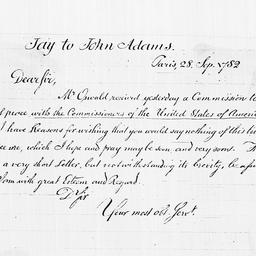 Jay to John Adams.
Paris, 28. Sep. 1782
Dear Sir,
Mr Oswald received yesterday a Commission to
peace with the Commissioners of the United States of Ameri
I have Reasons for wishing that you would say nothing of this
me, which I hope and pray may be soon and very soon.
a very short Letter, but notwithstanding its brevity, be
with great Esteem and Regard.
Dr Sir
Your most obt. Servt.